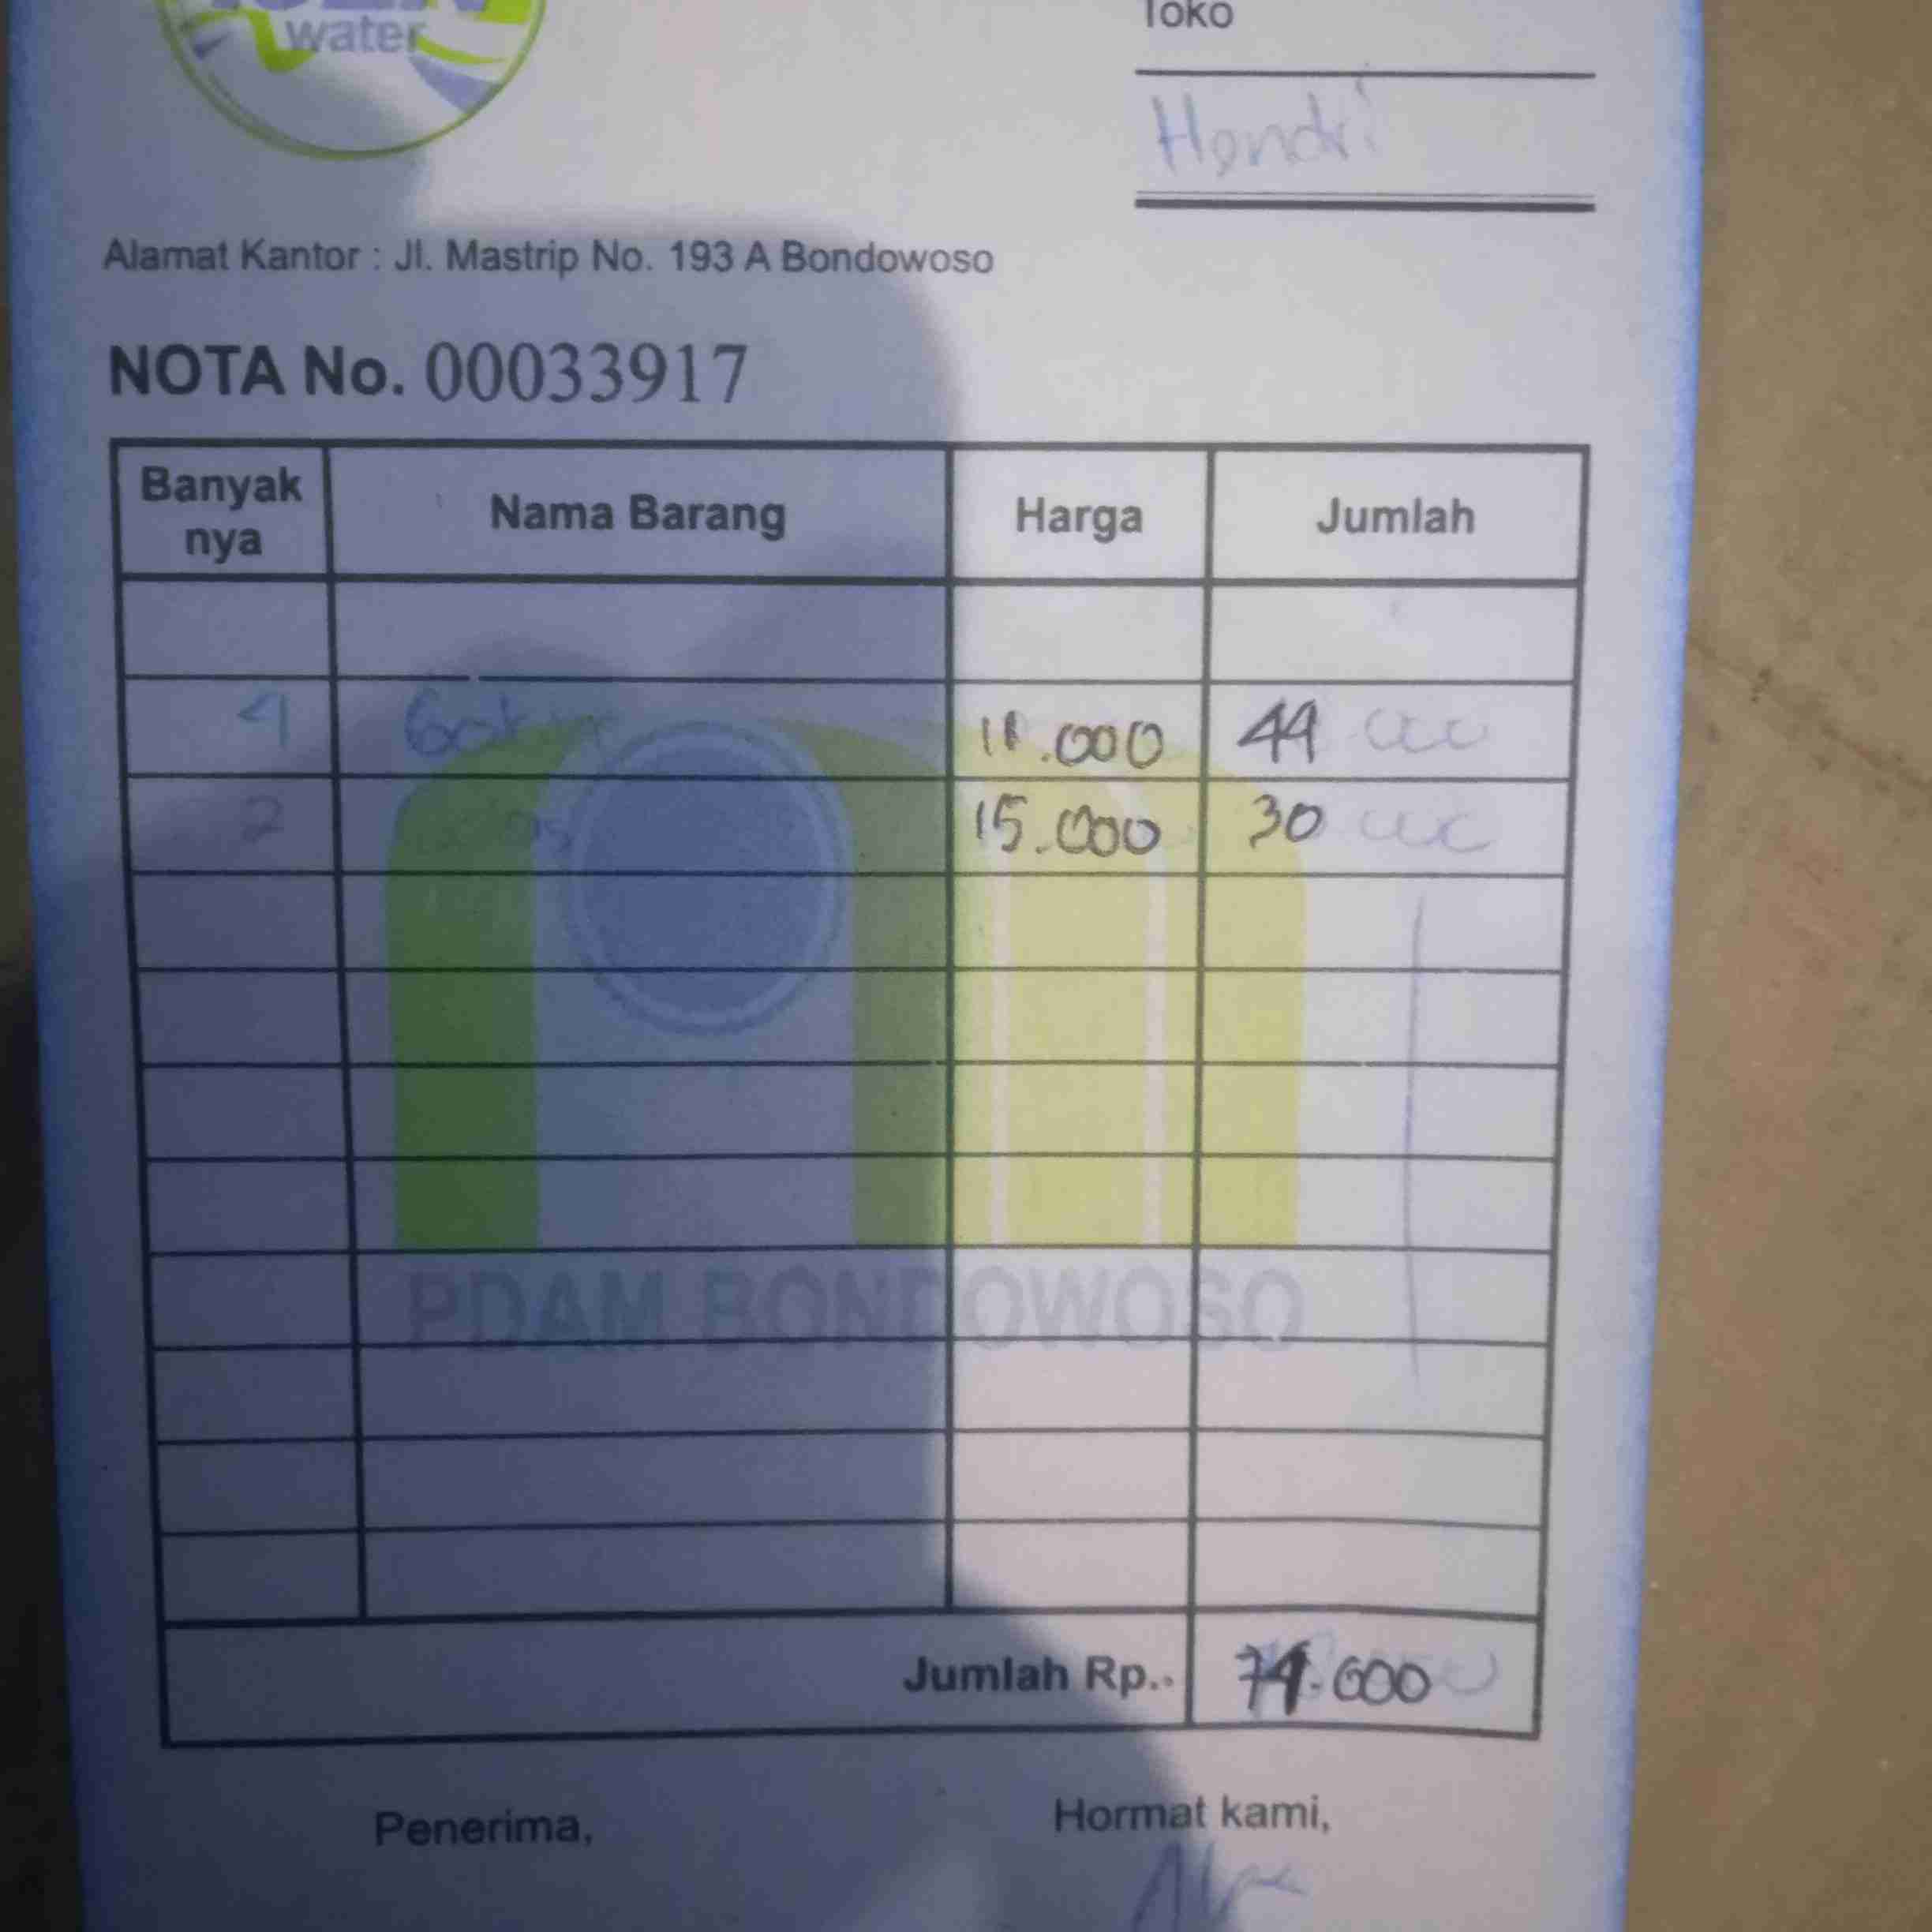 water
Toko
Hendri
Alamat Kantor : Jl. Mastrip No. 193 A Bondowoso
NOTA No. 00033917
Banyak nya Nama Barang Harga Jumlah
4 11.000 44 000
2 15.000 30 000
PDAM BONDOWOSO
Jumlah Rp.. 74.000
Penerima, Hormat kami,